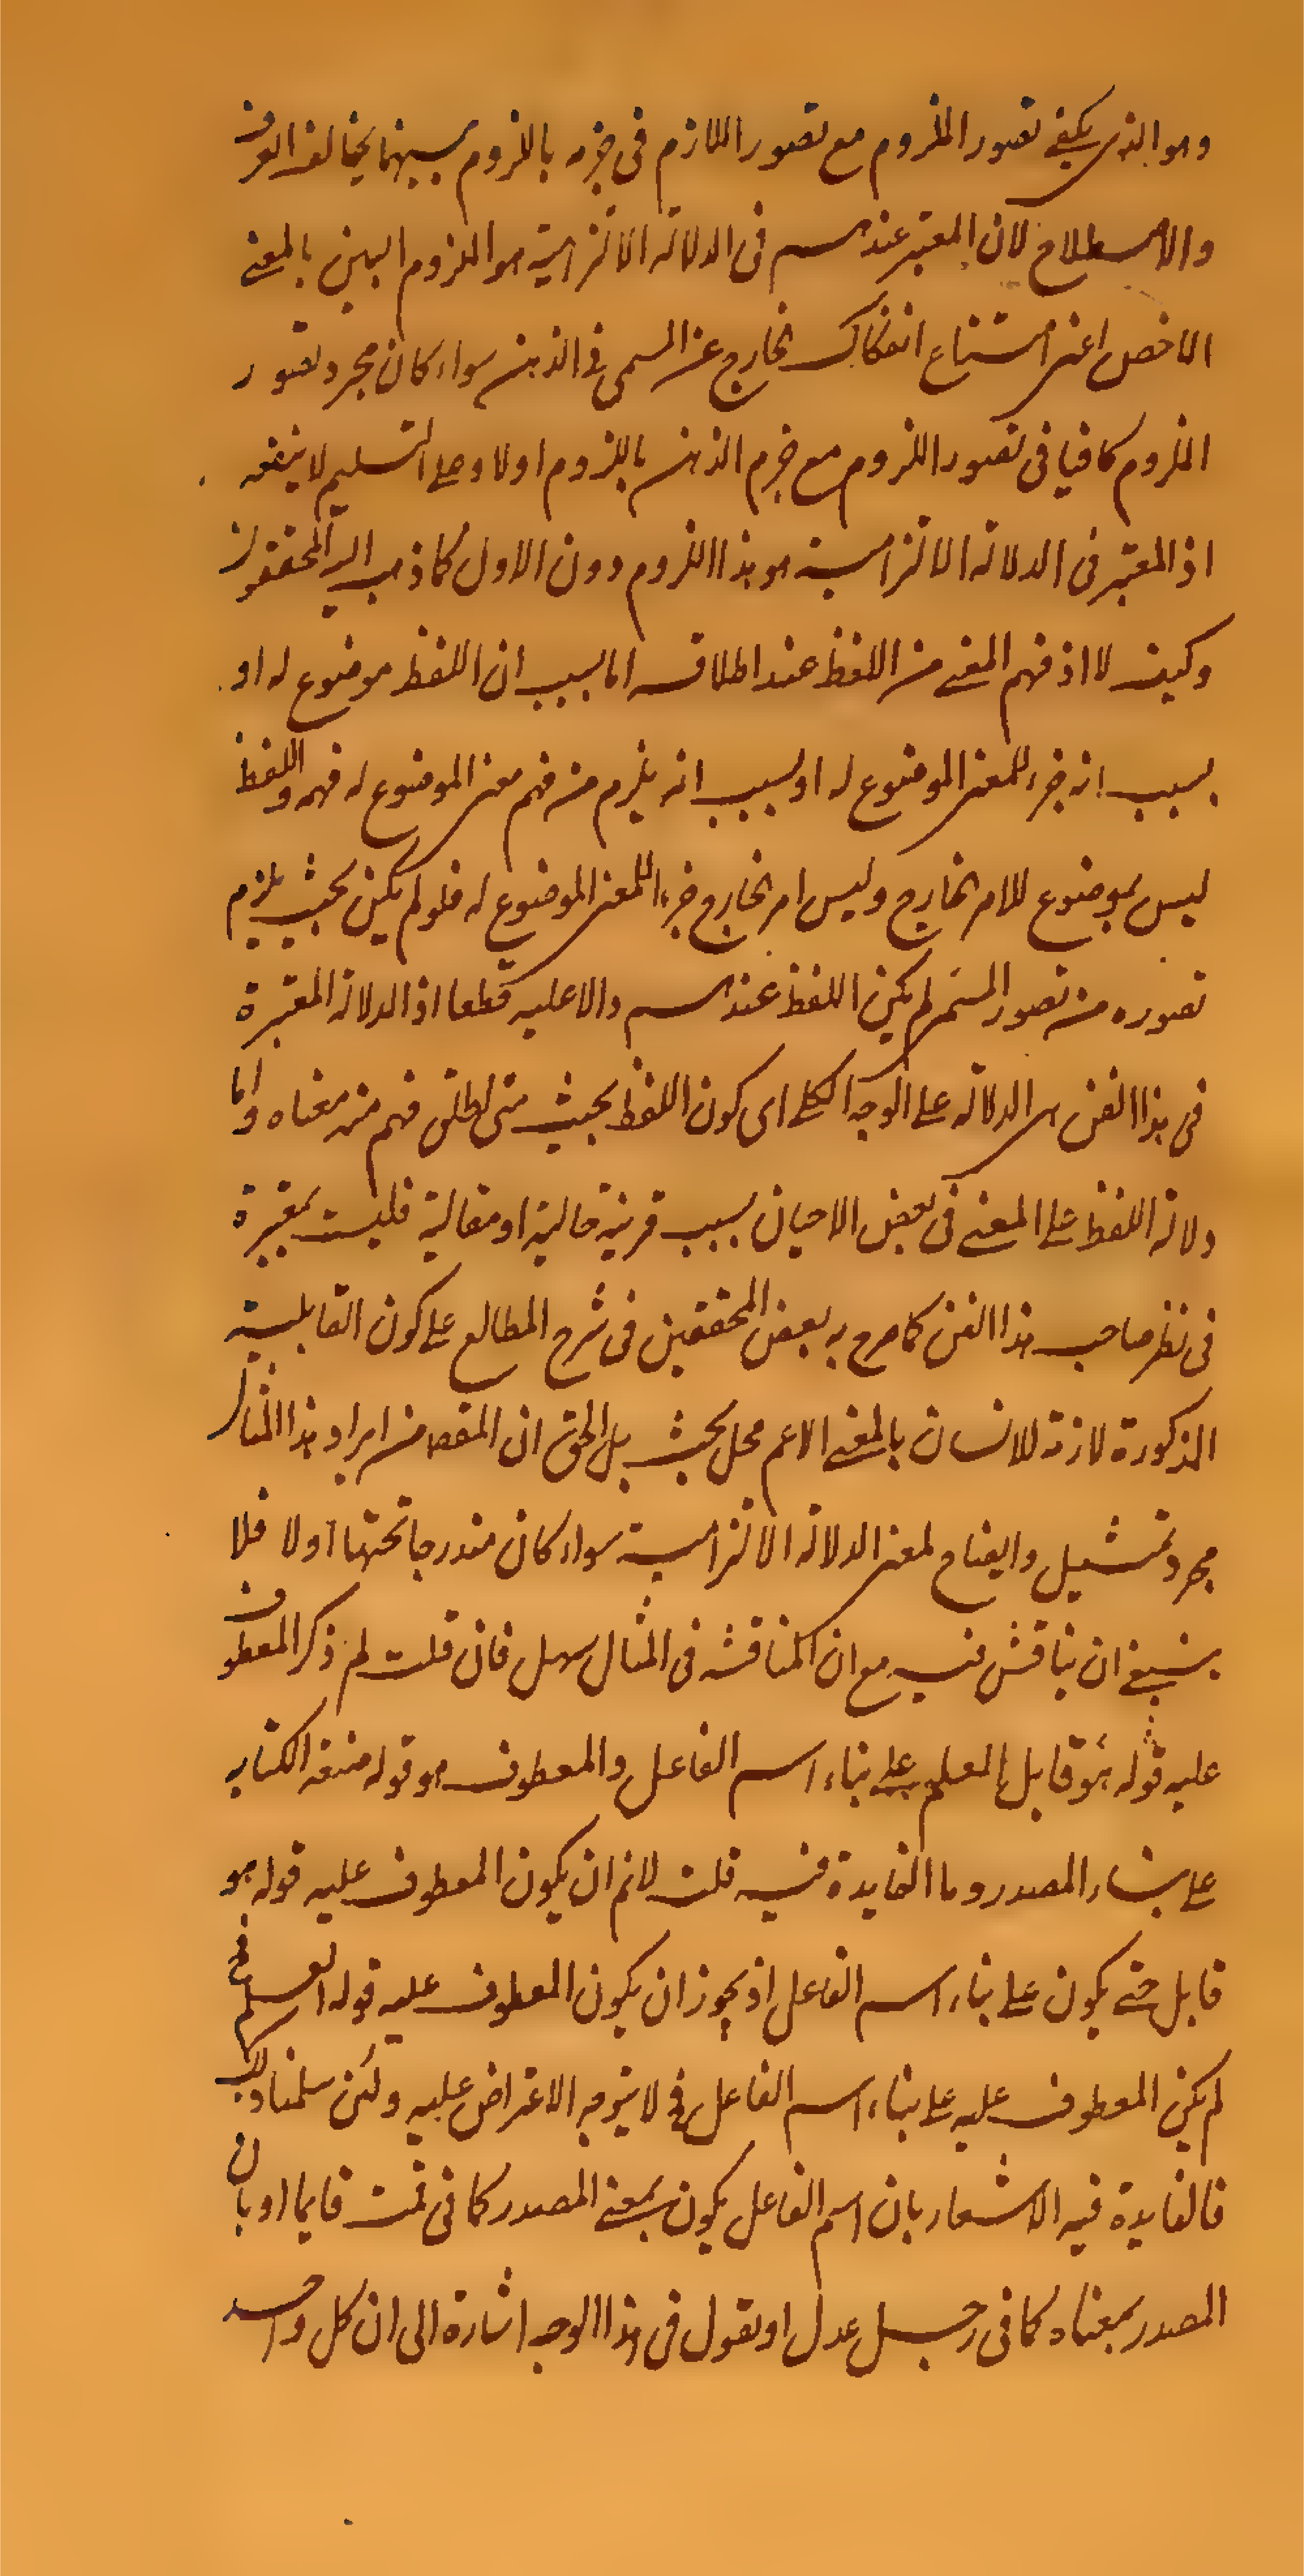 وهو الذى يكفى تصور الملزوم مع تصور اللازم فى جزمه باللزوم بينهما يخالف العرف
والاصطلاح لان المعتبر عندهم فى الدلالة الالتزامية هو اللزوم البين بالمعنى
الاخص اعنى امتناع انفكاك الخارج عن المسمى فى الذهن سواء كان مجرد تصور
الملزوم كافيا فى تصور اللزوم مع جزم الذهن باللزوم اولا وعلى التسليم لا ينفعه
اذ المعتبر فى الدلالة الالتزامية هو هذا اللزوم دون الاول كما ذهب اليه المحققون
وكيف لا اذ فهم المعنى من اللفظ عند اطلاقه اما بسبب ان اللفظ موضوع له او
بسبب انه جزء للمعنى الموضوع له او بسبب انه يلزم من فهم معنى الموضوع له فهمه واللفظ
ليس بموضوع للامر الخارج وليس امر الخارج جزء اللمعنى الموضوع له فلو لم يكن بحيث يلزم
تصوره من تصور المسمى لم يكن اللفظ عندهم دالا عليه قطعا اذ الدلالة المعتبرة
فى هذا الفن هى الدلالة على الوجه الكلى اى كون اللفظ بحيث متى اطلق فهم منه معناه واما
دلالة اللفظ على المعنى فى بعض الاحيان بسبب قرينة حالية او مقالية فليست بمعتبرة
فى نظر صاحب هذا الفن كما صرح به بعض المحققين فى شرح المطالع على كون القابلية
المذكورة لازمة للانسان بالمعنى الاعم محل بحث بل الحق ان المقصد من ايراد هذا المثال
مجرد تمثيل وايضاح لمعنى الدلالة الالتزامية سواء كان مندرجا تحتها اولا فلا
ينبغى ان يناقش فيه مع ان المناقشة فى المثال سهل فان قلت لم ذكر المعطوف
عليه قوله هو قابل العلم على بناء اسم الفاعل والمعطوف هو قوله صنعة الكتابه
على بناء المصدر وما الفايدة فيه قلت لانم ان يكون المعطوف عليه قوله هو
قابل حتى يكون على بناء اسم الفاعل اذ يجوز ان يكون المعطوف عليه قوله العلم فح
لم يكن المعطوف عليه على بناء اسم الفاعل فح لا يتوجه الاعتراض عليه ولئن سلمنا ذلك
فالفايدة فيه الاشعار بان اسم الفاعل يكون بمعنى المصدر كما فى قمت قايما او بان
المصدر بمعناه كما فى رجل عدل او نقول فى هذا الوجه اشارة الى ان كل واحد